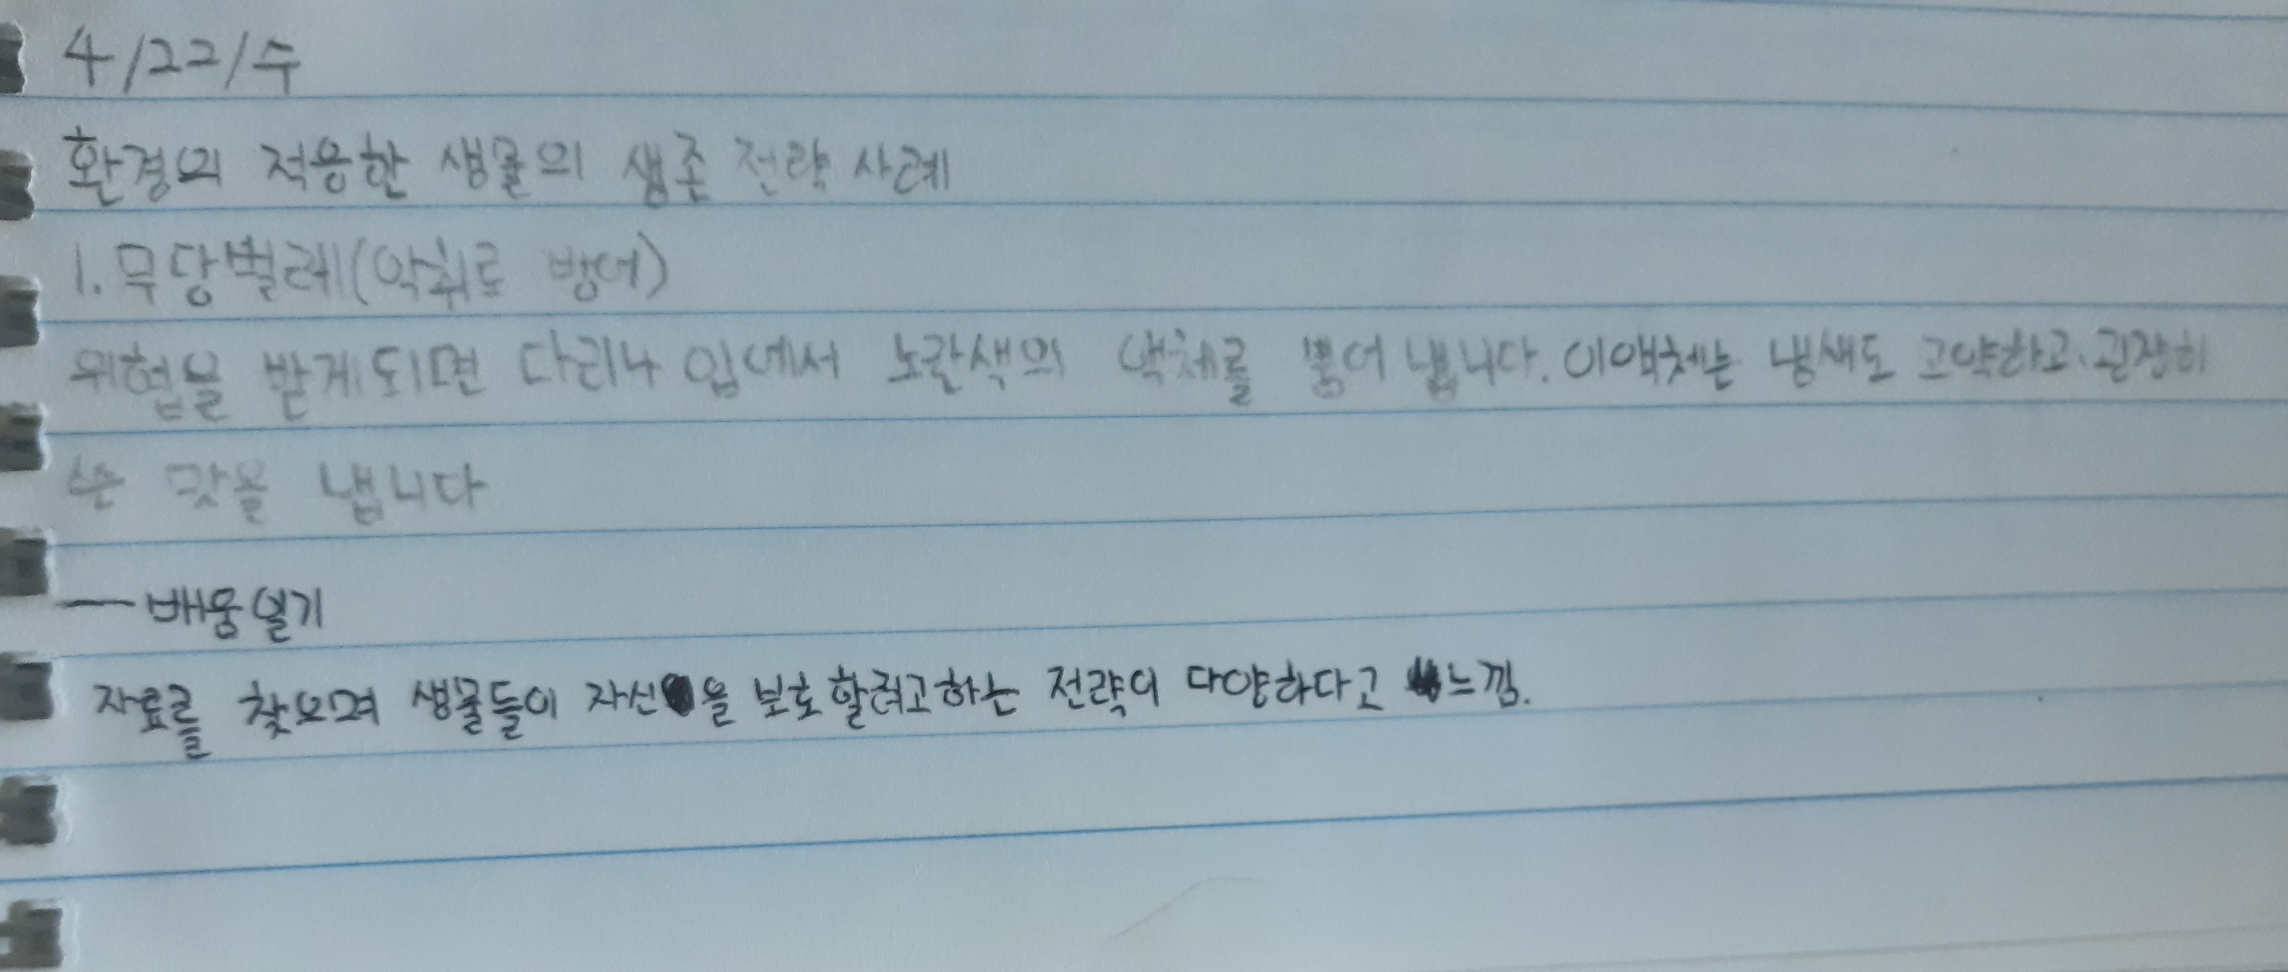 4/22/수
환경의 적응한 생물의 생존 전략 사례
1. 무당벌레(악취로 방어)
위협을 받게되면 다리나 입에서 노란색의 액체를 뿜어 냅니다. 이액체는 냄새도 고약하고, 굉장히
쓴 맛을 냅니다
― 배움열기
자료를 찾으며 생물들이 자신을 보호할려고하는 전략이 다양하다고 느낌.